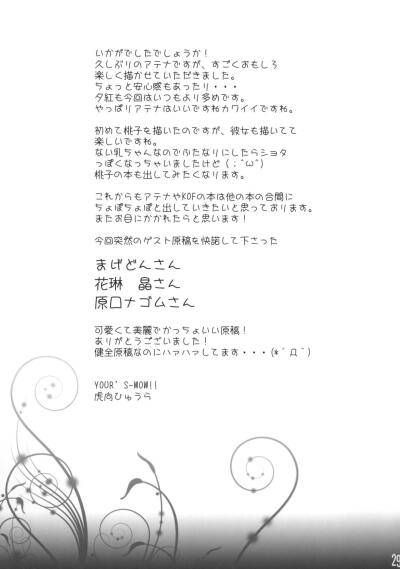 いかがでしたでしょうか！
久しぶりのアテナですが、すごくおもしろ
楽しく描かせていただきました。
ちょっと安心感もあったり・・・
夕紅も今回はいつもより多めです。
やっぱりアテナはいいですねカワイイですね。
初めて桃子を描いたのですが、彼女も描いてて
楽しいですね。
ない乳ちゃんなのでふたなりにしたらショタ
っぽくなっちゃいましたけど（；^ω^）
桃子の本も出してみたくなります。
これからもアテナやKOFの本は他の本の合間に
ちょぼちょぼと出していきたいと思っております。
またお目にかかれたらと思います！
今回突然のゲスト原稿を快諾して下さった
まげどんさん
花琳　晶さん
原口ナゴムさん
可愛くて美麗でかっちょいい原稿！
ありがとうございました！
健全原稿なのにハァハァしてます・・・(*´Д｀)
YOUR' S-WOW!!
虎向ひゅうら
29